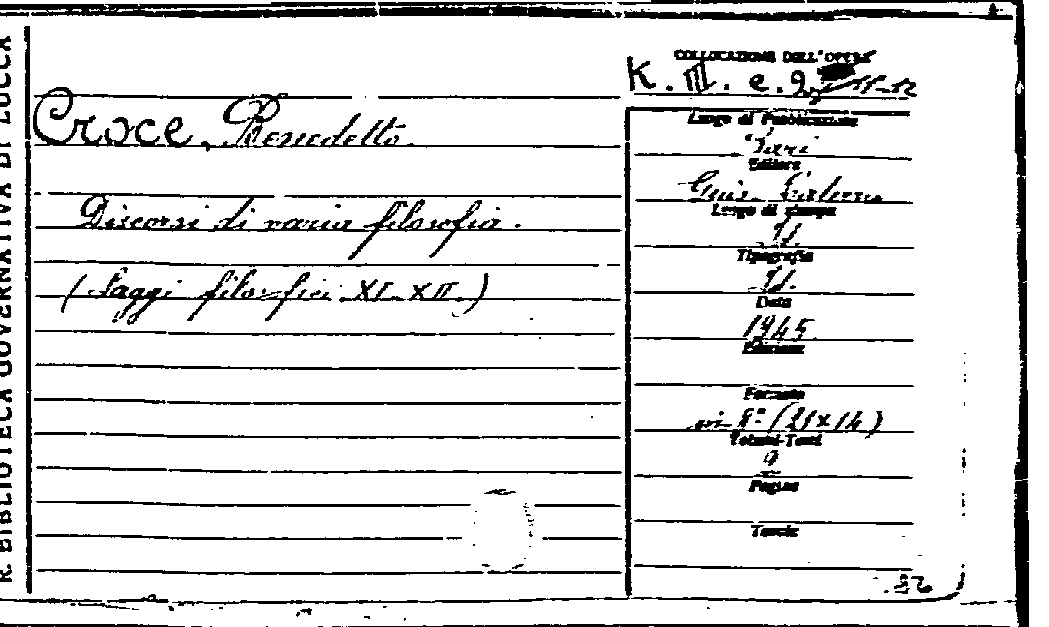 R. BIBLIOTECA GOVERNATIVA DI LUCCA
Croce, Benedetto.
Discorsi di varia filosofia.
(Saggi filosofici XI-XII.)
COLLOCAZIONE DELL'OPERA
K. III. e. 11-12
Luogo di Pubblicazione
Bari
Editore
Gius. Laterza
Luogo di stampa
Id.
Tipografia
Id.
Data
1945
Edizione
Formato
in 8° (21x14)
Volumi-Tomi
2
Pagine
Tavole